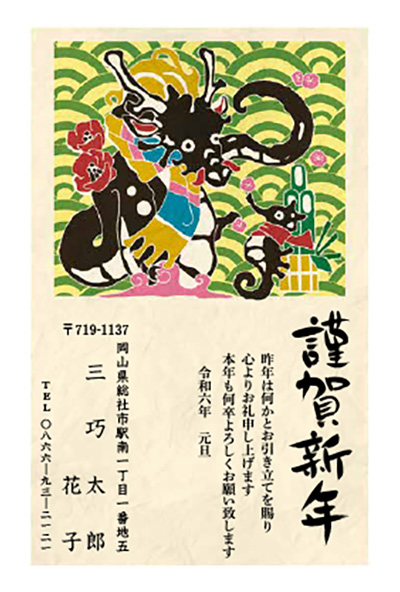 謹賀新年
昨年は何かとお引き立てを賜り
心よりお礼申し上げます
本年も何卒よろしくお願い致します
令和六年　元旦
〒719-1137
岡山県総社市駅南一丁目一番地五
三巧太郎
花子
TEL 〇八六六―九三―二一二一